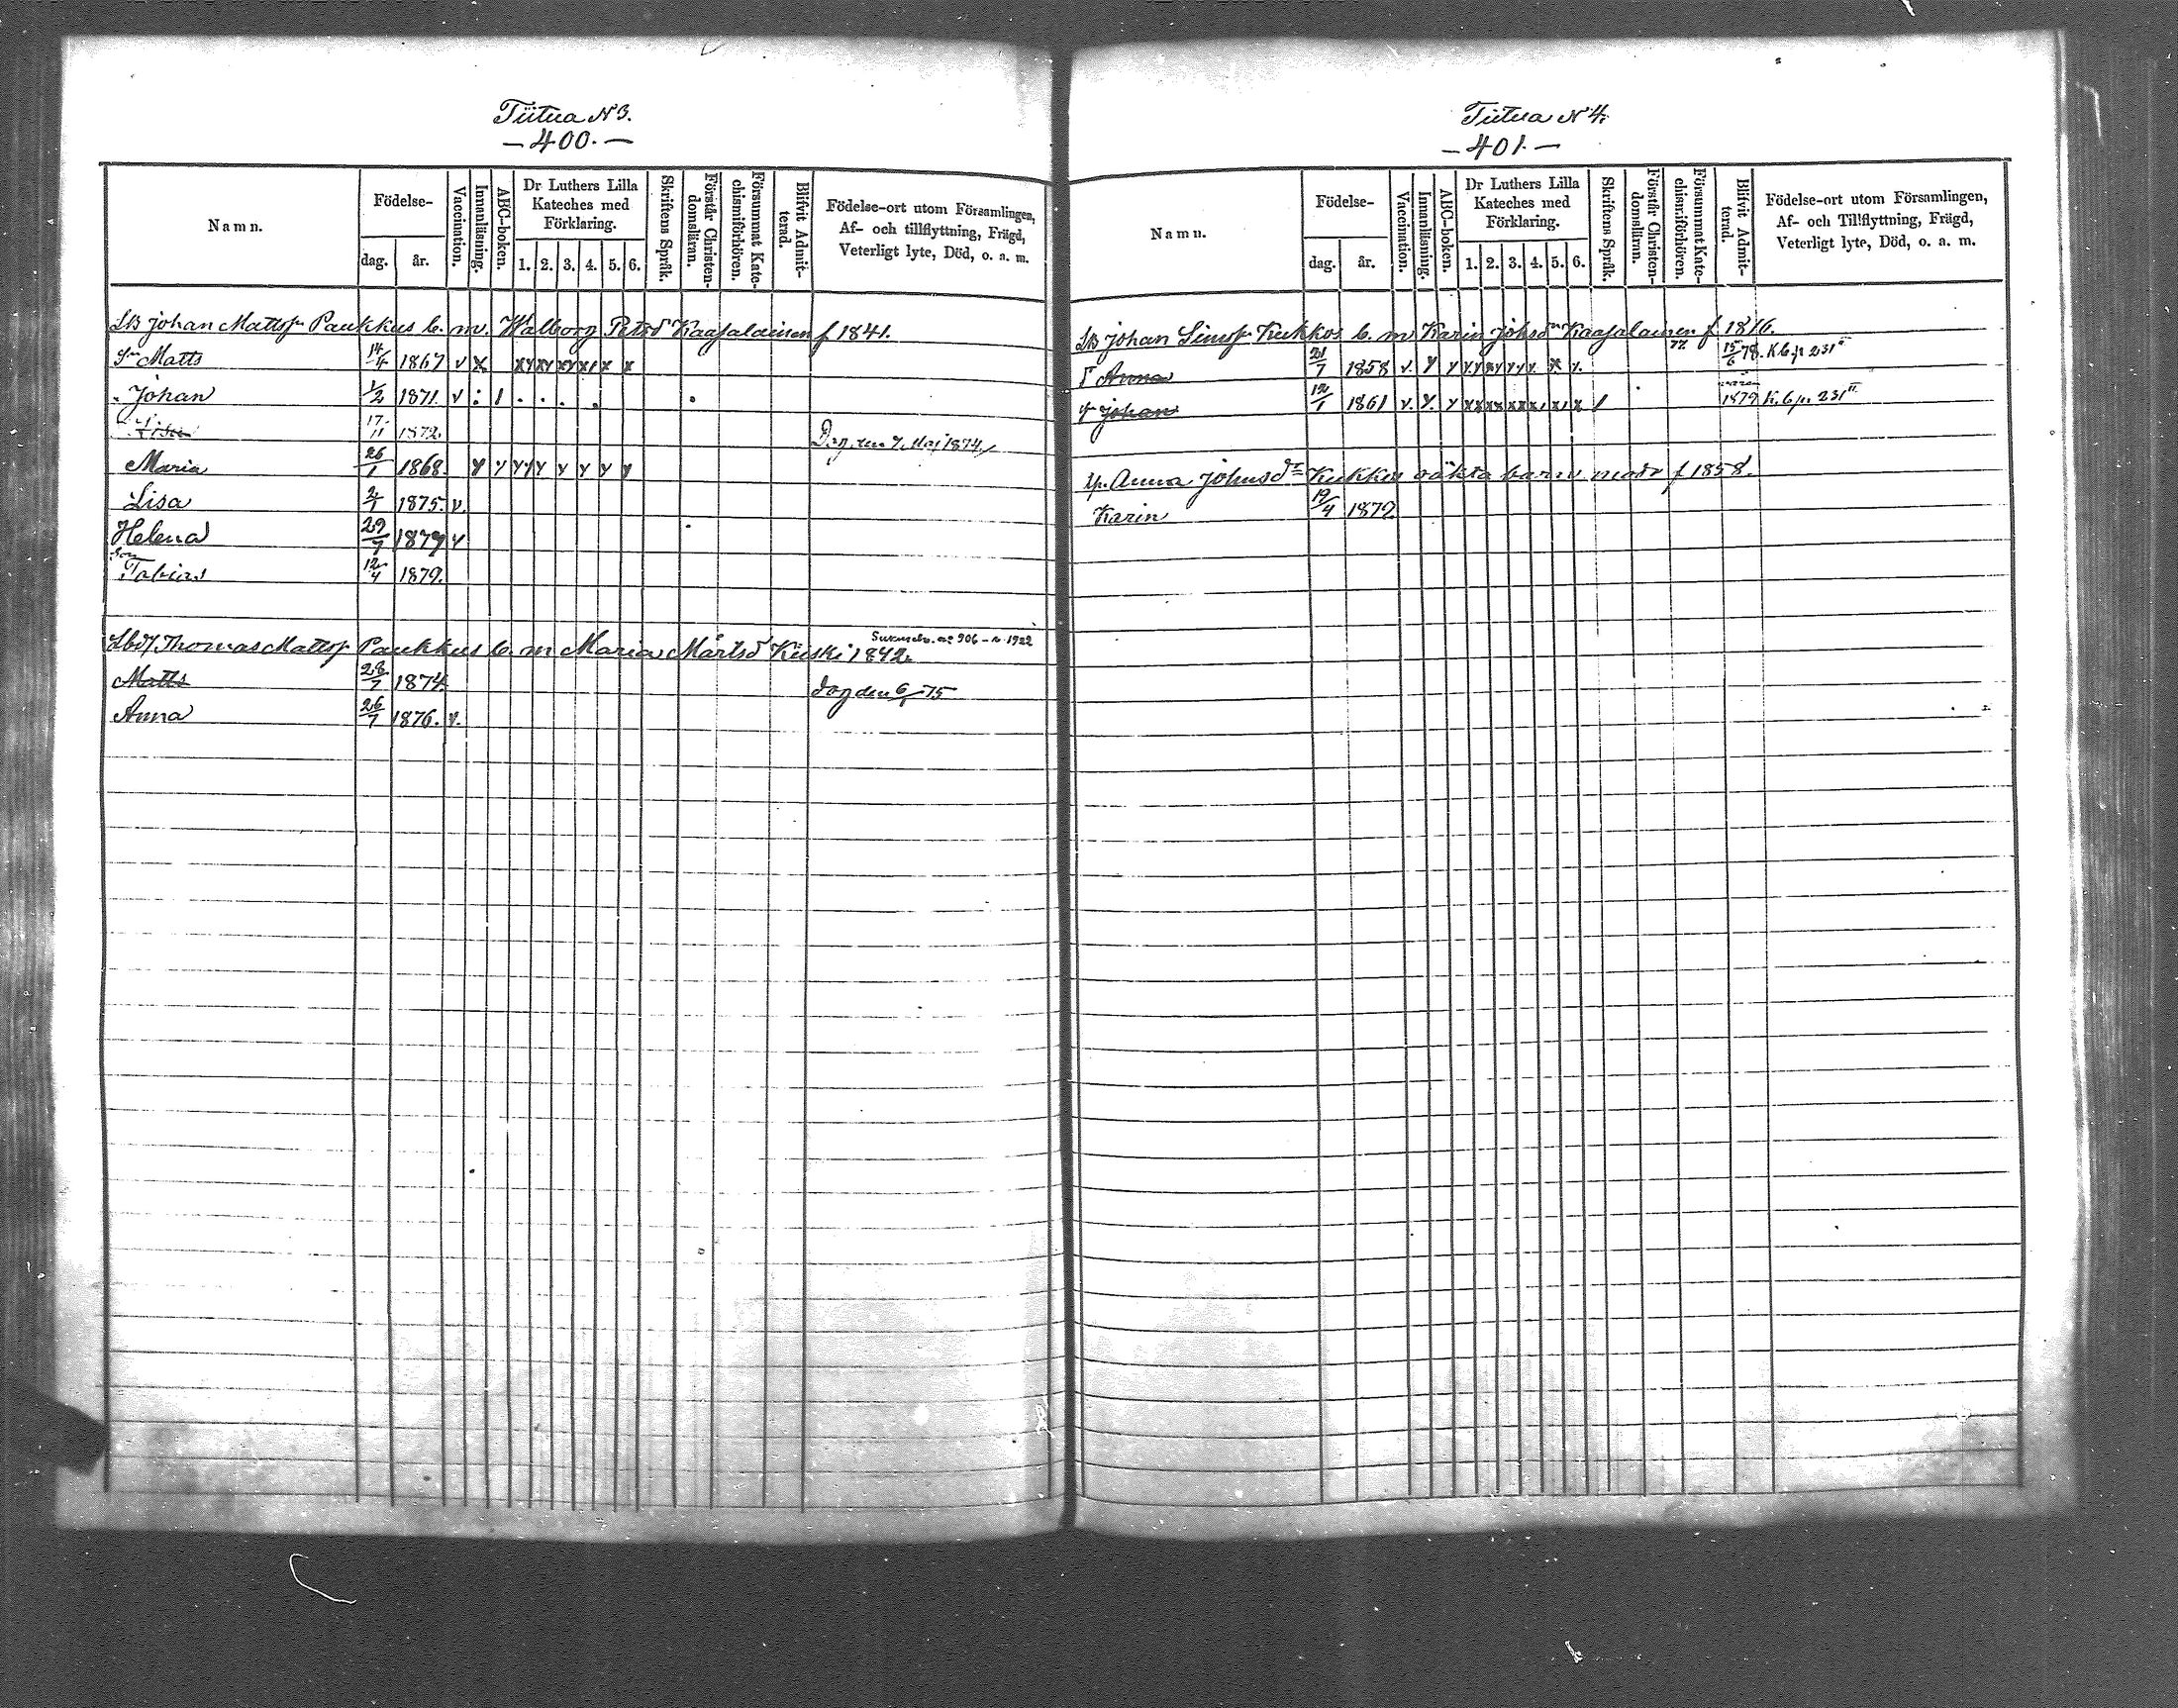 Tiitua N 3.
— 400. —
Namn.
Födelse-
dag.
år.
Vaccination.
Innanläsning.
ABC-boken.
Dr Luthers Lilla
Kateches med
Förklaring.
1. 2. 3. 4. 5. 6.
Skriftens Språk.
Förstår Christen-
domsläran.
Försummat Kate-
chismiförhören.
Blifvit Admit-
terad.
Födelse-ort utom Församlingen,
Af- och tillflyttning, Frägd,
Veterligt lyte, Död, o. a. m.
Johan Mattss Paukkus b. m. Walborg Petrsd Kaasalainen f 1841.
Sn Matts 14/4 1867 v x x y x y x y x 1 x x
Johan 1/2 1871. v : 1 . . . . .
Lisa 17/11 1872. Dog den 7 Maj 1874.
Maria 26/1 1868. y y y y y y y y y
Lisa 2/1 1875. v.
Helena 29/7 1877 v
son
Tobias 12/4 1879.
Thomas Mattss Paukkus b. m Maria Mårtsd Kiiski 1842.
906 – 1922
Matts 28/7 1874. dog den 6/1 75
Anna 26/7 1876. v.
Tiitua N 4.
— 401. —
Namn.
Födelse-
dag.
år.
Vaccination.
Innanläsning.
ABC-boken.
Dr Luthers Lilla
Kateches med
Förklaring.
1. 2. 3. 4. 5. 6.
Skriftens Språk.
Förstår Christen-
domsläran.
Försummat Kate-
chismiförhören.
Blifvit Admit-
terad.
Födelse-ort utom Församlingen,
Af- och Tillflyttning, Frägd,
Veterligt lyte, Död, o. a. m.
Johan Simss Kukkos b. m Karin Johsd Kaasalainen f 1816.
Anna 21/7 1858 v. y y y y x y y y y. x. y. 77 15/6 78. K.b. p 231 II
Johan 12/1 1861 v. y. y x x x x x x x 1 x 1 x / 1879 K.b p. 231 II.
Anna Johnsd Kukkos oäkta barn moder f 1858.
Karin 19/4 1879